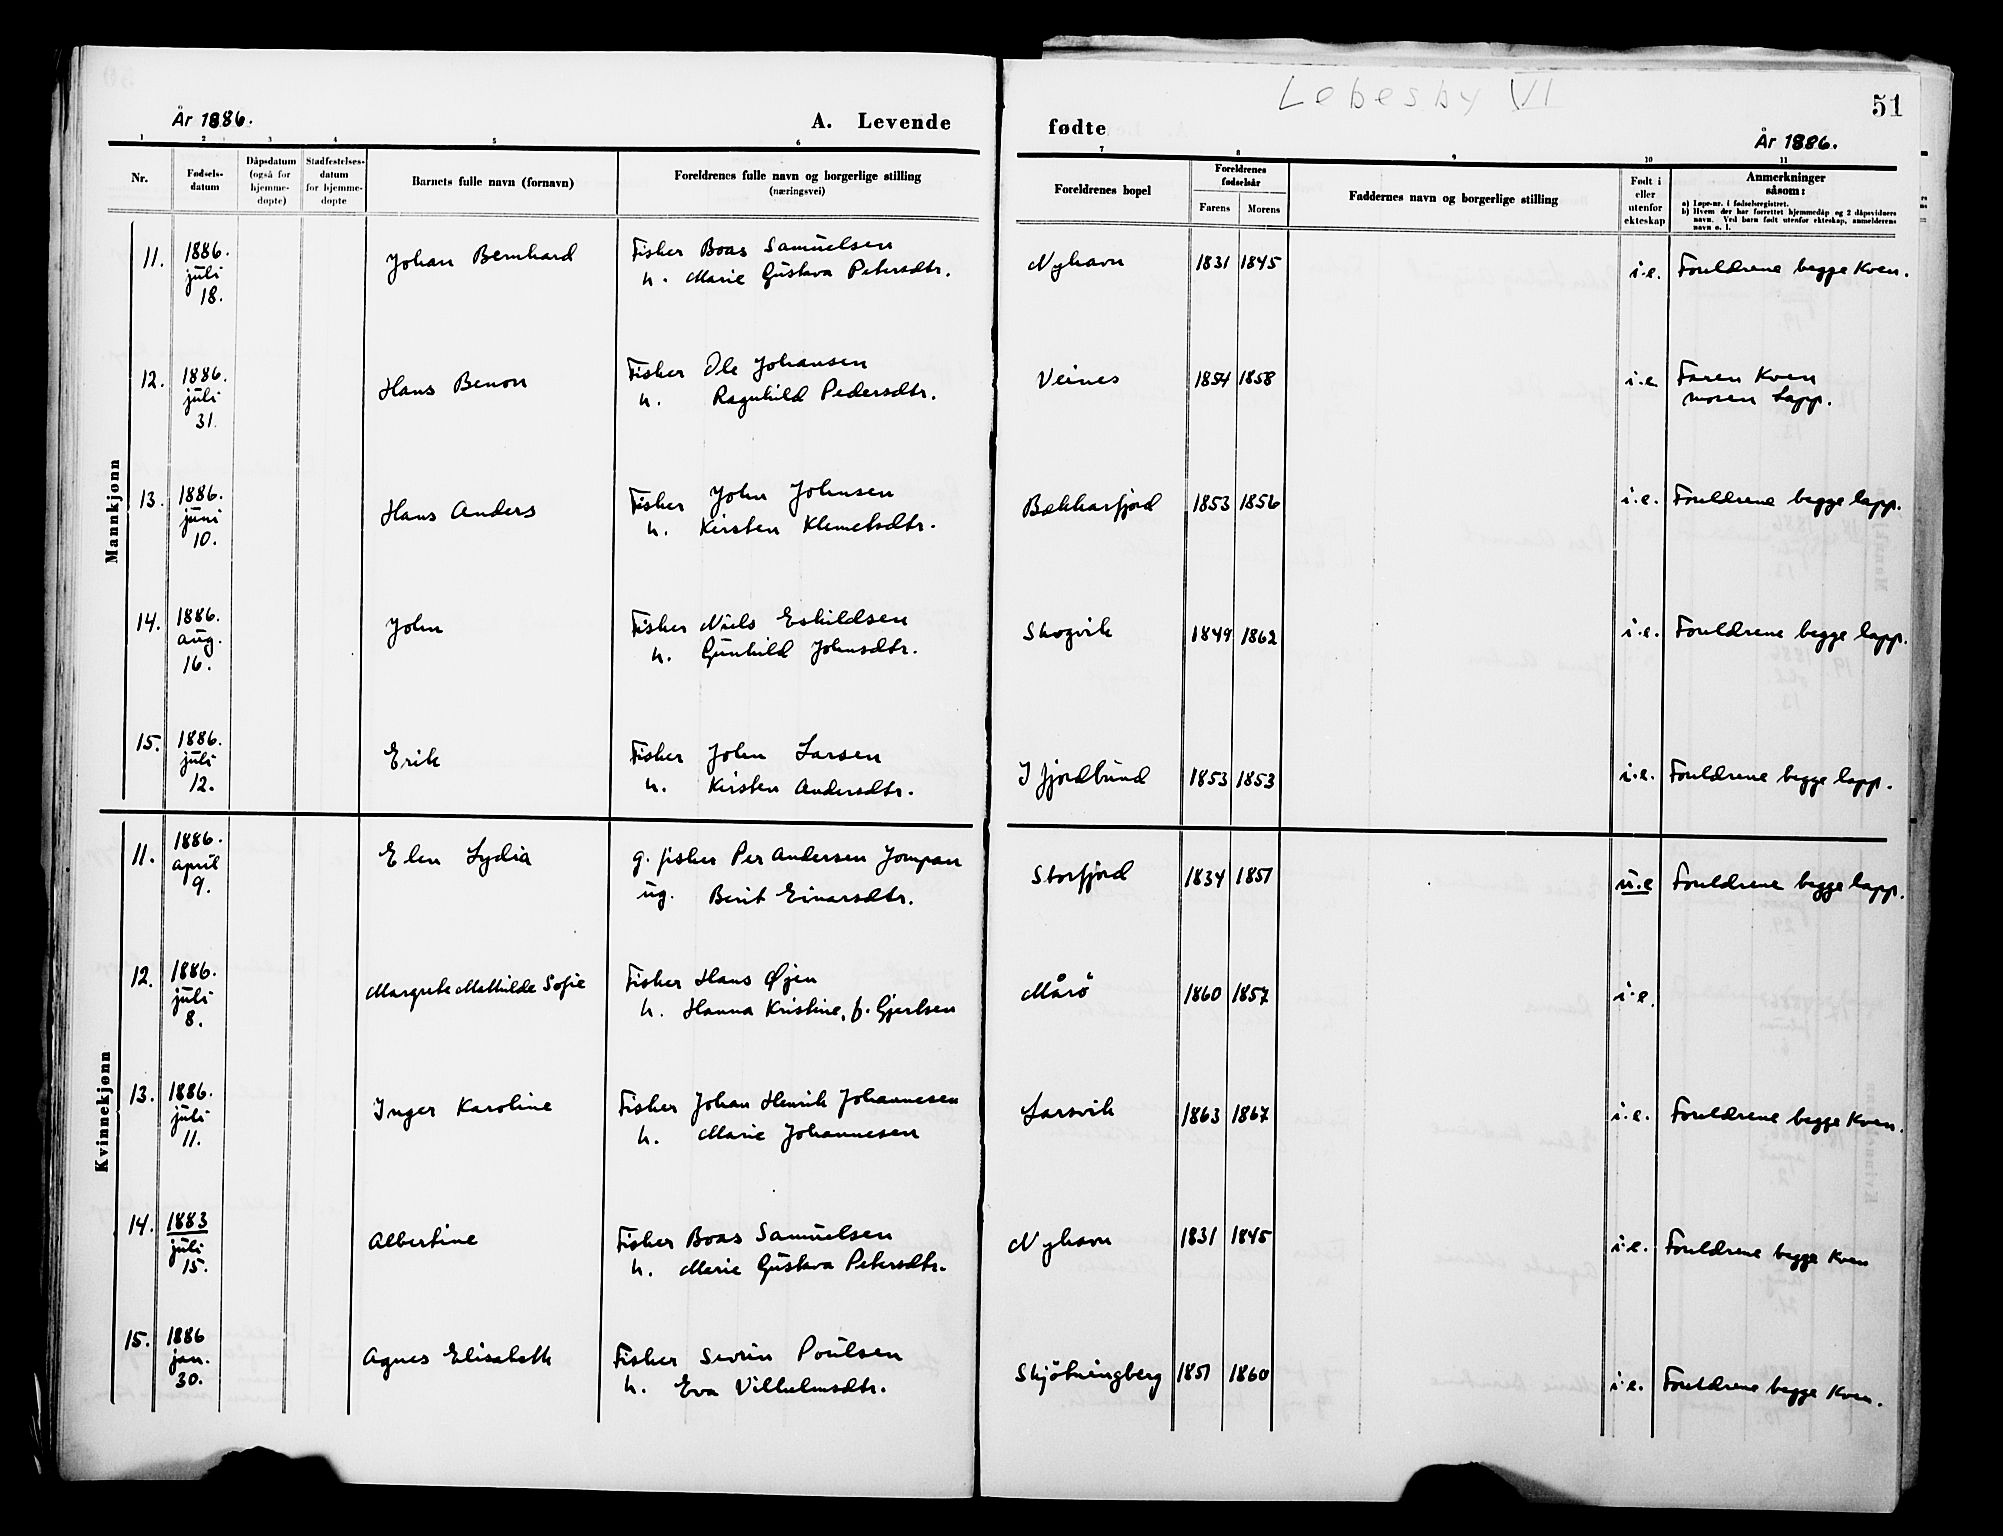 Lebesby VI
51
År 1886.
A. Levende
fødte
År 1886.
1 2 3 4 5 6 7 8 9 10 11
Nr.
Fødsels-
datum
Dåpsdatum
(også for
hjemme-
døpte)
Stadfestelses-
datum
for hjemme-
døpte
Barnets fulle navn (fornavn)
Foreldrenes fulle navn og borgerlige stilling
(næringsvei)
Foreldrenes bopel
Foreldrenes
fødselsår
Farens Morens
Faddernes navn og borgerlige stilling
Født i
eller
utenfor
ekteskap
Anmerkninger
såsom:
a) Løpe-nr. i fødselsregistret.
b) Hvem der har forrettet hjemmedåp og 2 dåpsvidners
navn. Ved barn født utenfor ekteskap, anmelderens
navn o. l.
Mannkjønn
11. 1886. juli 18. Johan Bernhard Fisker Boas Samuelsen Nyhavn 1831 1845 i.e. Foreldrene begge Kven.
h. Marie Gustava Petersdtr.
12. 1886. juli 31. Hans Benon Fisker Ole Johansen Veines 1854 1858 i.e. Faren Kven
h. Ragnhild Pedersdtr. moren lapp.
13. 1886. juni 10. Hans Anders Fisker John Johnsen Bekkarfjord 1853 1856 i.e. Foreldrene begge lapp.
h. Kirsten Klemetsdtr.
14. 1886. aug. 16. John Fisker Niels Eskildsen Skogvik 1849 1862 i.e. Foreldrene begge lapp.
h. Gunhild Johnsdtr.
15. 1886. juli 12. Erik Fisker John Larsen Ifjordbund 1853 1853 i.e. Foreldrene begge lapp.
h. Kirsten Andersdtr.
Kvinnekjønn
11. 1886. april 9. Elen Lydia g. fisker Per Andersen Jompan Storfjord 1834 1851 u.e Foreldrene begge lapp.
ug. Berit Einarsdtr.
12. 1886. juli 8. Margrete Mathilde Sofie Fisker Hans Øjen Mårö 1860 1857 i.e.
h. Hanna Kristine, f. Gjertsen
13. 1886. juli 11. Inger Karoline Fisker Johan Henrik Johannesen Larsvik 1863 1867 i.e. Foreldrene begge Kven.
h. Marie Johannesen
14. 1883 juli 15. Albertine Fisker Boas Samuelsen Nyhavn 1831 1845 i.e. Foreldrene begge Kven
h. Marie Gustava Petersdtr.
15. 1886 jan. 30. Agnes Elisabeth Fisker Sevrin Poulsen Skjötningberg 1851 1860 i.e. Foreldrene begge Kven.
h. Eva Vilhelmsdtr.